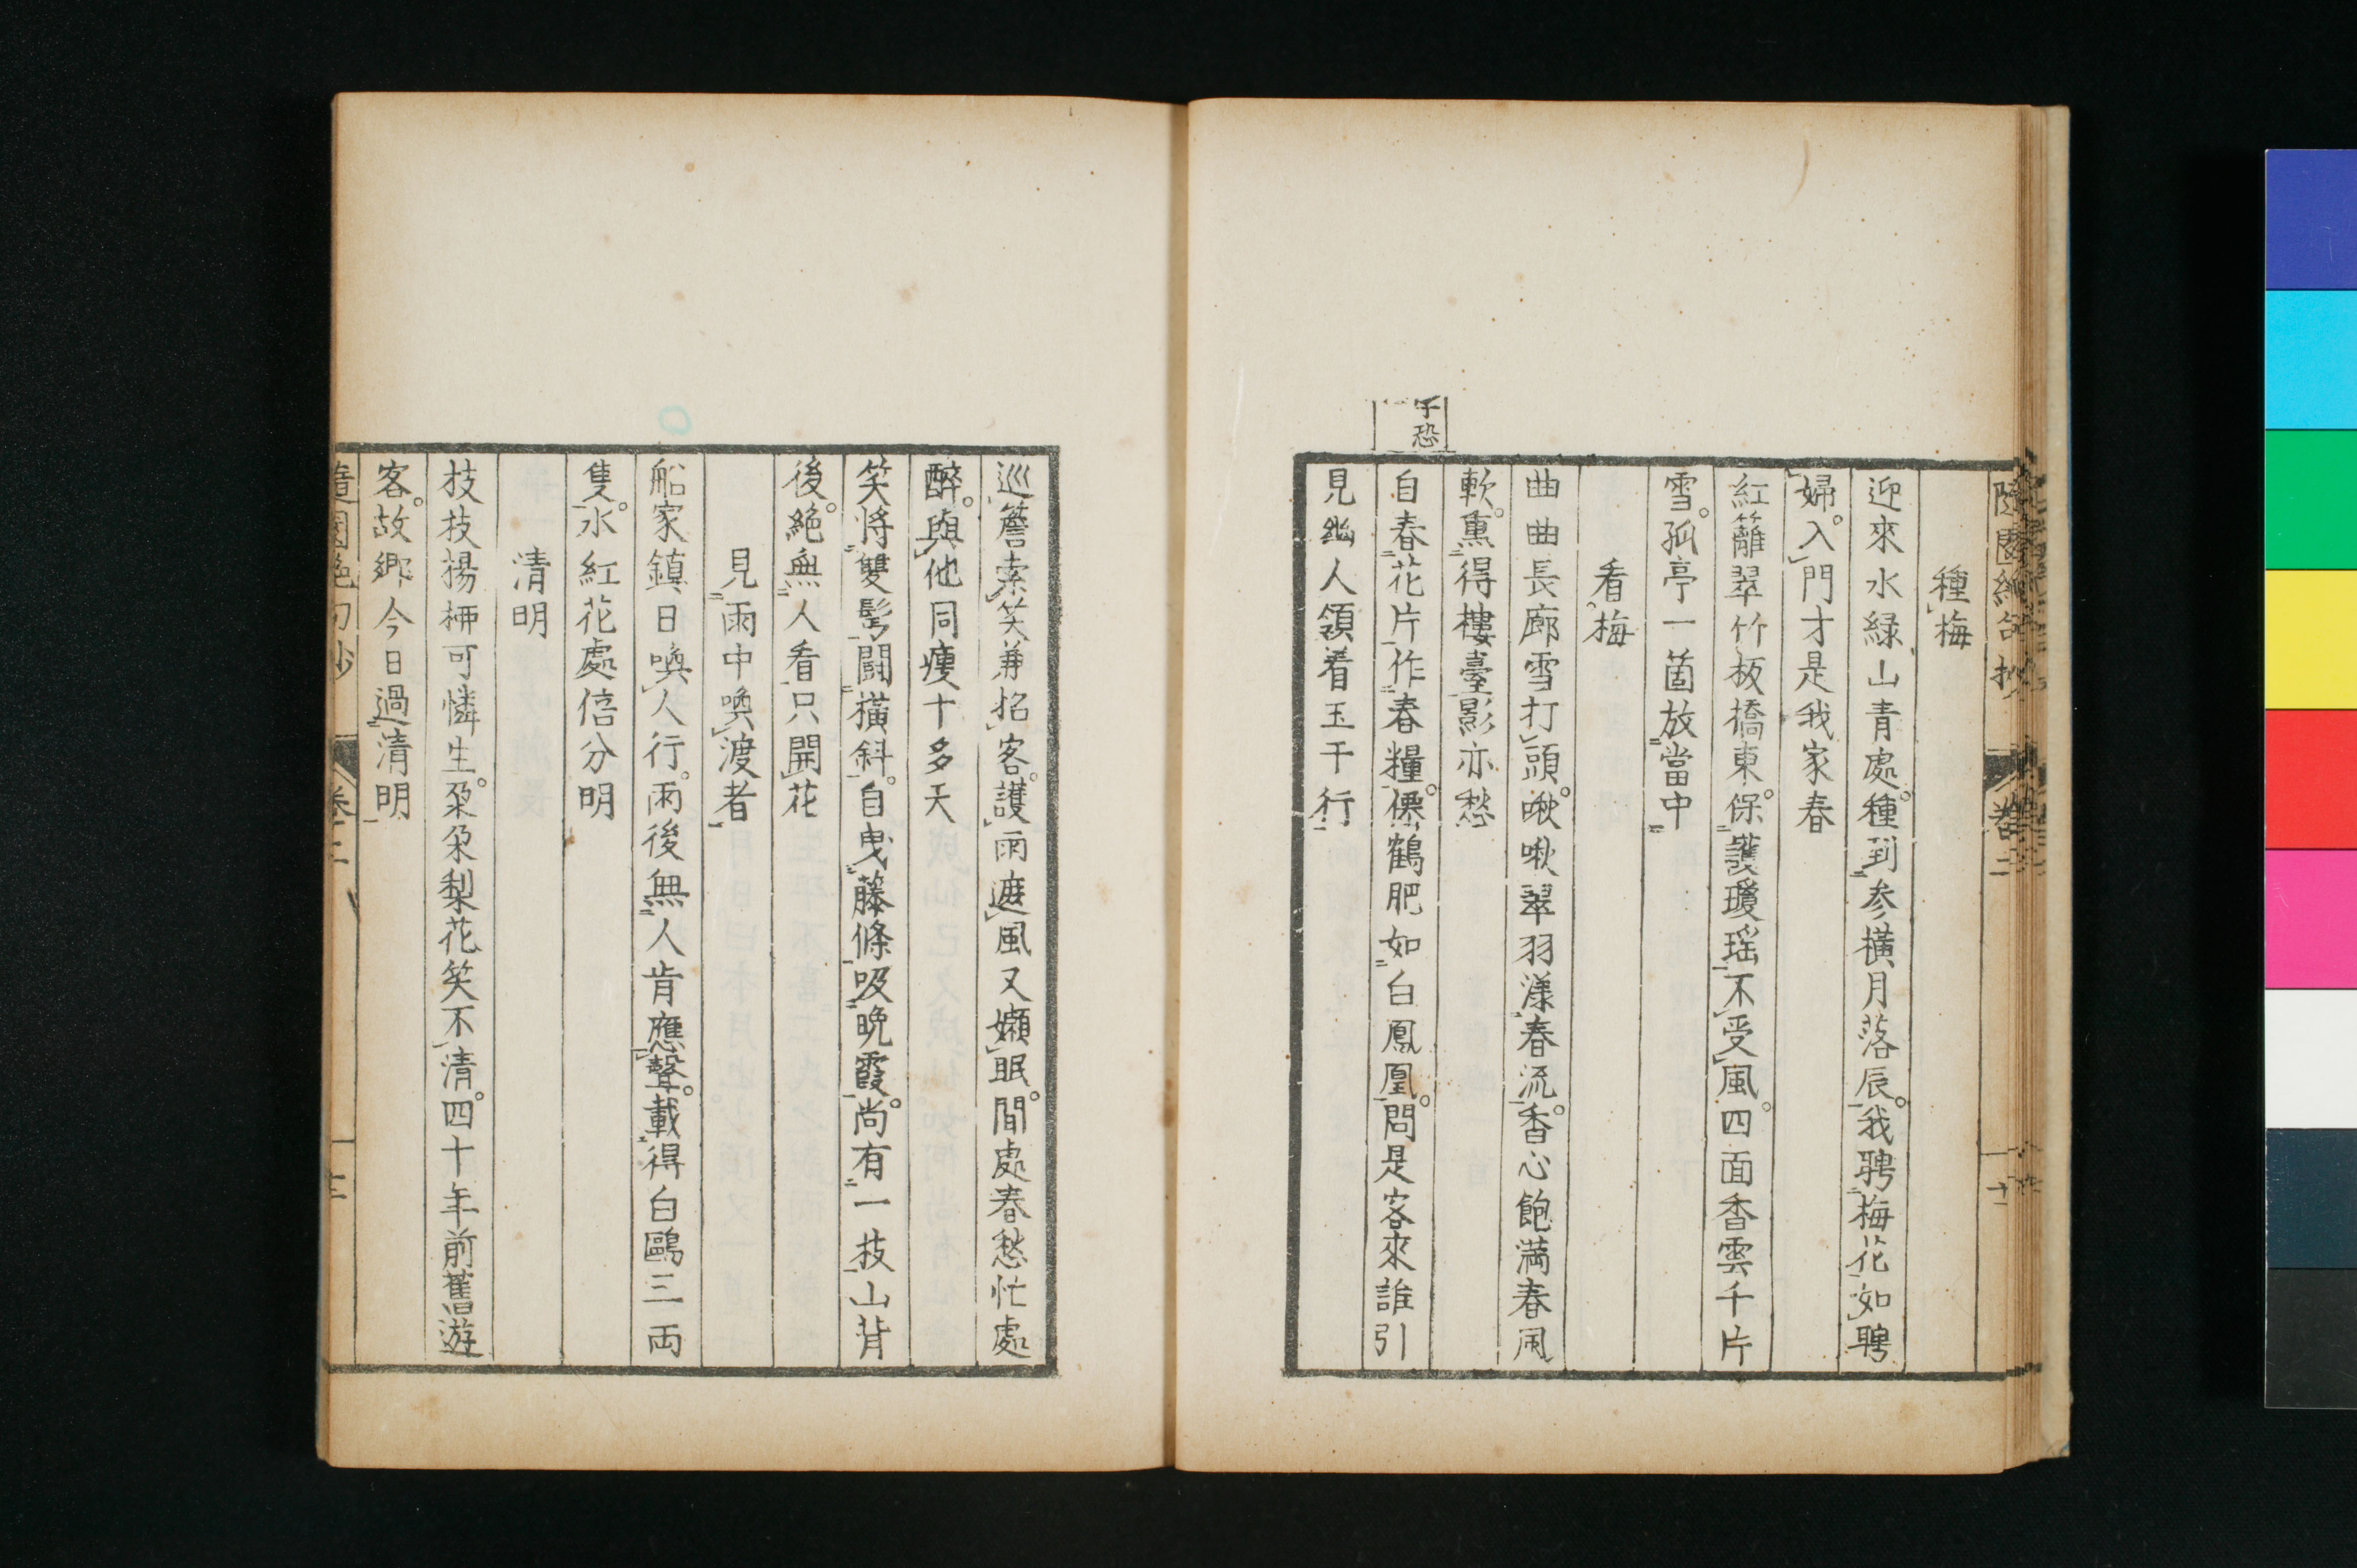 隨園絶句抄 卷二 十
種梅
迎來水緑山青處。種到参橫月落辰。我聘梅花如聘
婦。入門才是我家春
紅籬翠竹板橋東。保護瓊瑶不受風。四面香雲千片
雪。孤亭一箇放當中
看梅
曲曲長廊雪打頭。啾啾翠羽漾春流。香心飽満春風
軟。薫得樓臺影亦愁
自春花片作春糧。傔鶴肥如白鳳凰。問是客來誰引
見幽人領着玉千行
巡簷索笑兼招客。護雨遮風又嬾眠。間處春愁忙處
醉。與他同瘦十多天
笑將雙髩闘橫斜。自曳藤條吸晩霞。尚有一技山背
後。絶無人看只開花
見雨中喚渡者
船家鎮日喚人行。雨後無人肯應聲。載得白鷗三両
隻。水紅花處倍分明
清明
技技楊栁可憐生。朶朶梨花笑不清。四十年前舊遊
客。故郷今日過清明